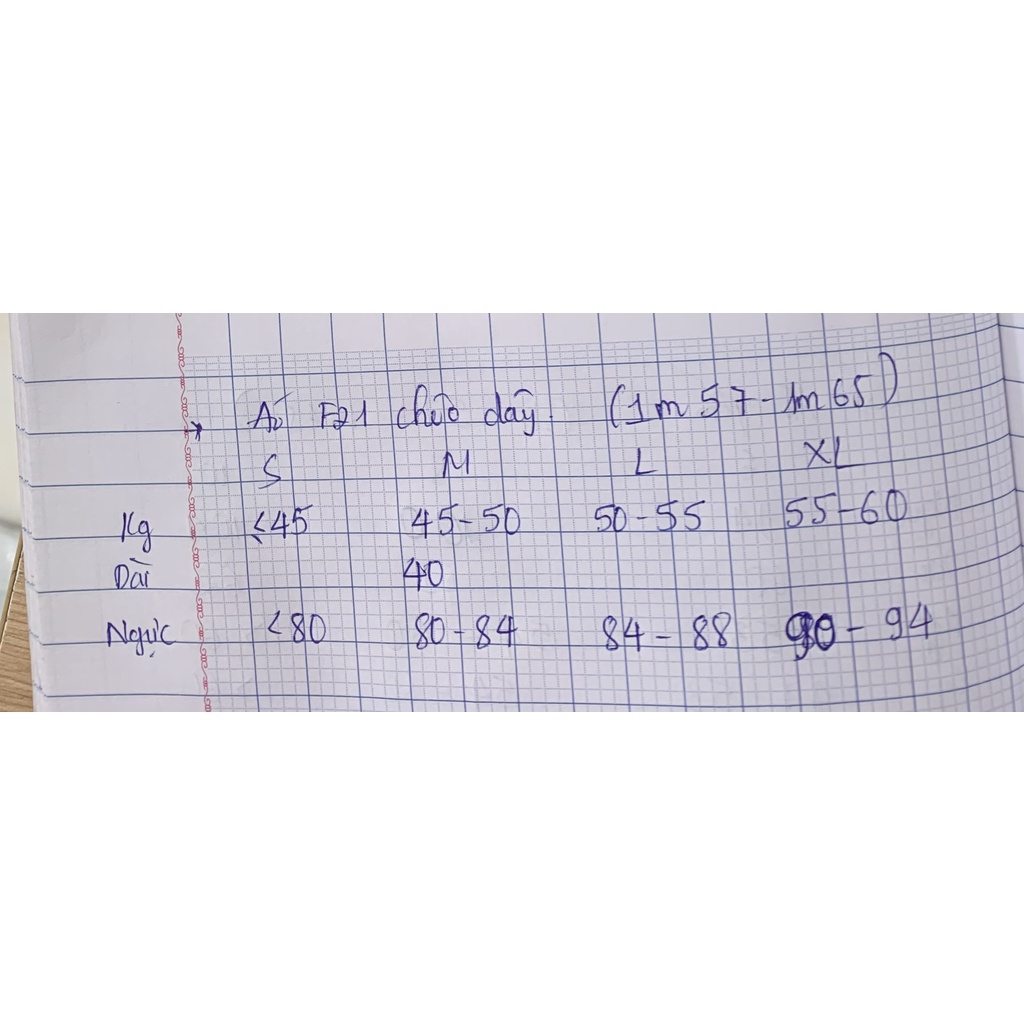 → Áo F21 chéo dây (1m57-1m65)
S M L XL
Kg ≤45 45-50 50-55 55-60
Dài 40
Ngực <80 80-84 84-88 90-94